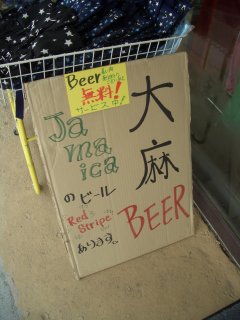 Beer
無料!
サービス中!
大麻
BEER
Jamaica
のビール
Red Stripe
あります。